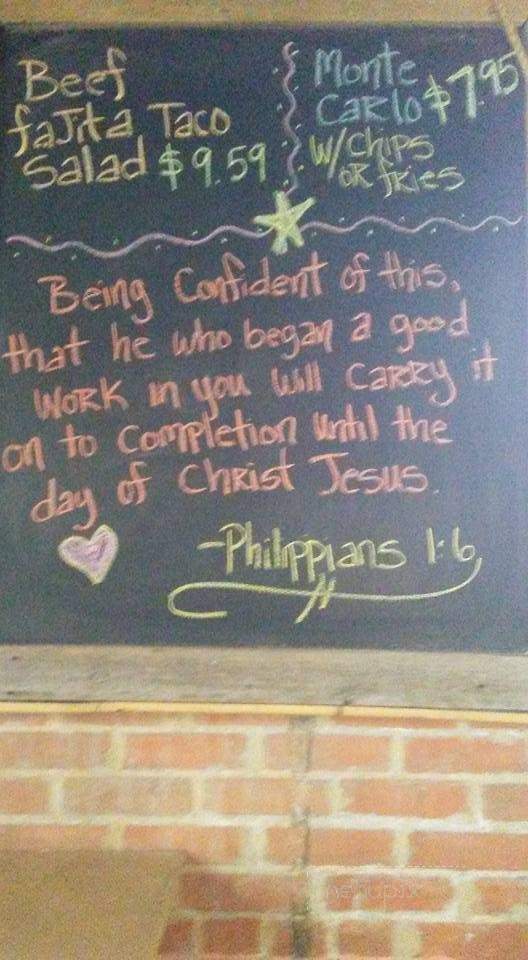 Beef
fajita Taco
Salad $9.59
Monte
Carlo $7.95
w/chips
or fries
Being Confident of this,
that he who began a good
work in you will carry it
on to completion until the
day of Christ Jesus.
-Philippians 1:6